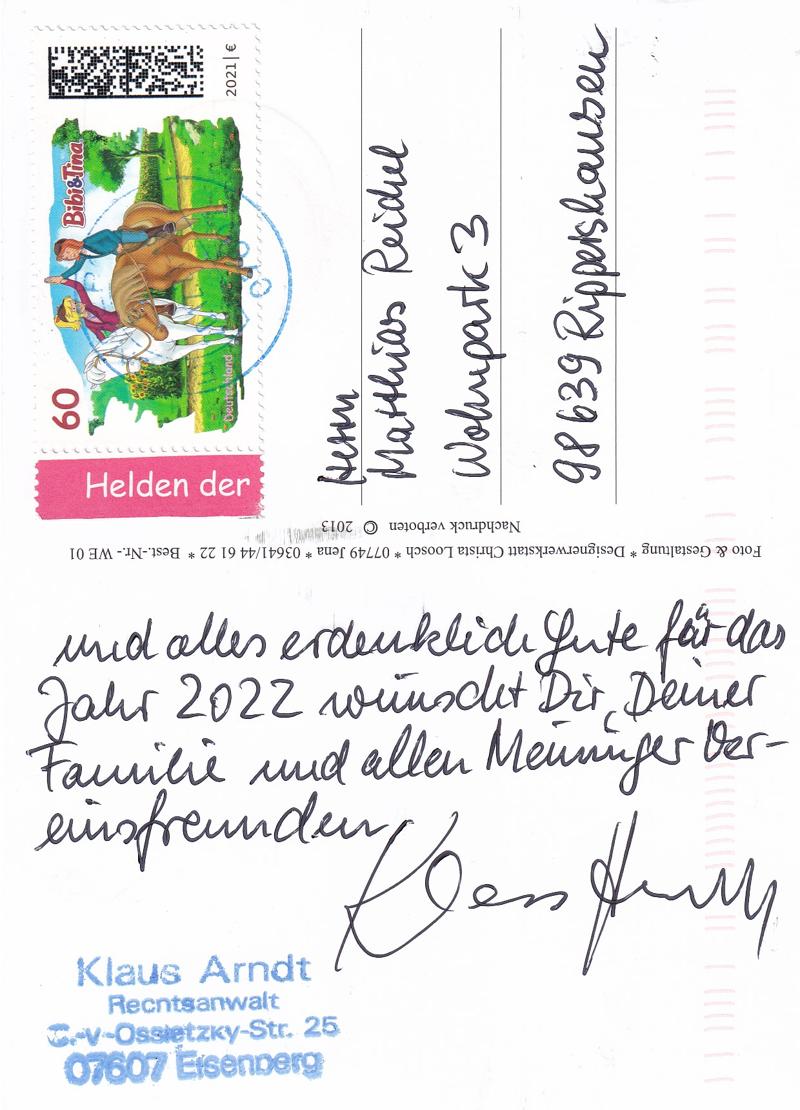 2021 | €
Bibi&Tina
60
Deutschland
Helden der
Herrn
Matthias Reichel
Wohnpark 3
98639 Rippershausen
Nachdruck verboten © 2013
Foto & Gestaltung * Designerwerkstatt Christa Loosch * 07749 Jena * 03641/44 61 22 * Best.-Nr.- WE 01
und alles erdenklich Gute für das
Jahr 2022 wünscht Dir, Deiner
Familie und allen Meininger Ver-
einsfreunden
Klaus Arndt
Klaus Arndt
Rechtsanwalt
C.-v-Ossietzky-Str. 25
07607 Eisenberg